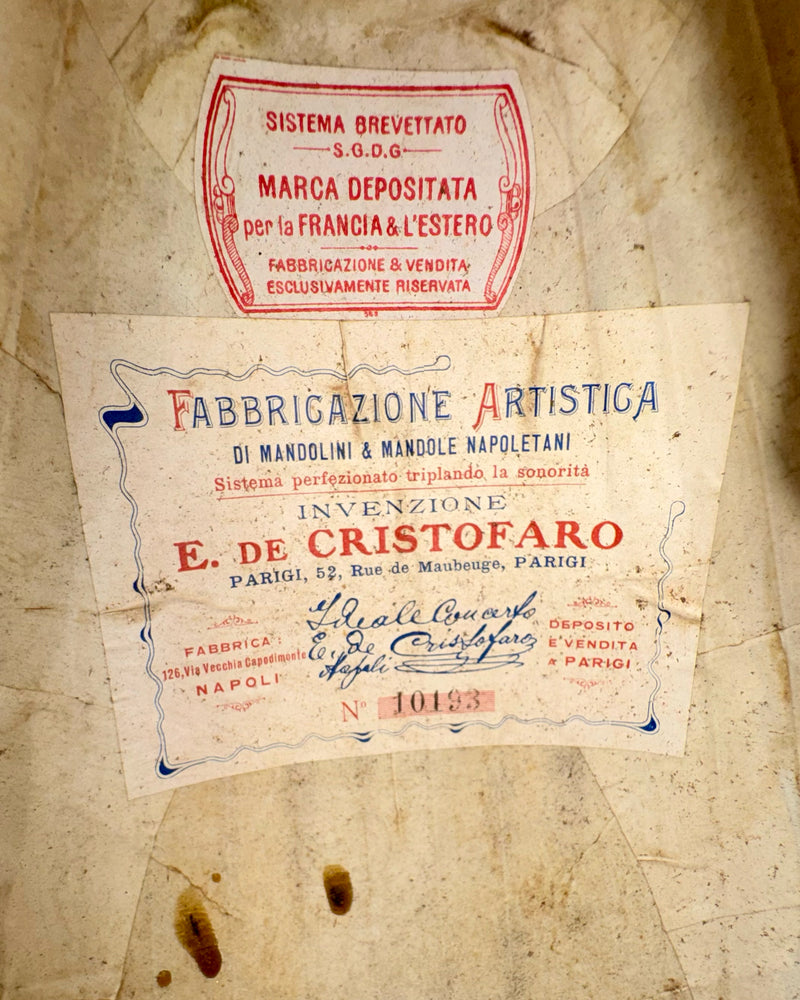 SISTEMA BREVETTATO
S.G.D.G
MARCA DEPOSITATA
per la FRANCIA & L'ESTERO
FABBRICAZIONE & VENDITA
ESCLUSIVAMENTE RISERVATA
FABBRICAZIONE ARTISTICA
DI MANDOLINI & MANDOLE NAPOLETANI
Sistema perfezionato triplando la sonorità
INVENZIONE
E. DE CRISTOFARO
PARIGI, 52, Rue de Maubeuge, PARIGI
Ideale Concerto
E. de Cristofaro
Napoli
FABBRICA:
126, Via Vecchia Capodimonte
NAPOLI
DEPOSITO
E VENDITA
a PARIGI
No 10193